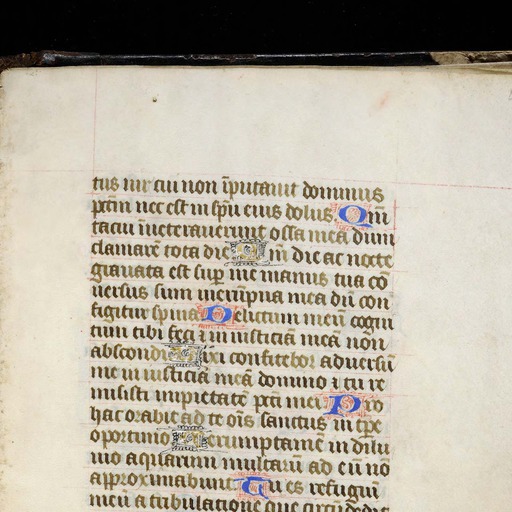 tus uir cui non īputauit dominus
pctm̄ nec est in spū eius dolus Qm̄
tacui īueterauerunt ossa mea dum
clamarē tota die Qm̄ die ac nocte
grauata est sup̄ me manus tua cō
uersus sum in erūpna mea dū con
figitur spina Delictum meū cogni
tum tibi feci ⁊ in iusticiā meā non
abscondi Dixi confitebor aduersū
me in iusticiā meā domino ⁊ tu re
misisti impietatē pcti mei Pro
hac orabit ad te oīs sanctus in tpe
oportuno Verumptamē in dilu
uio aquarum multarū ad eū nō
approximabunt Tu es refugiū
meū a tribulatione que circūdedit